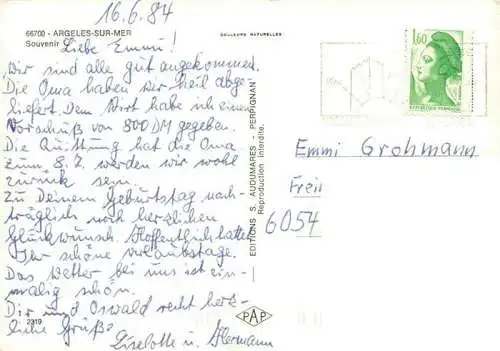 16.6.84
66700 - ARGELES-SUR-MER
Souvenir
COULEURS NATURELLES
Liebe Emmi!
Wir sind alle gut angekommen.
Die Oma haben wir heil abge-
liefert. Dem Wirt habe ich einen
Vorschuß von 800 DM gegeben.
Die Quittung hat die Oma
zum 8.7. werden wir wohl
zurück sein.
Zu Deinem Geburtstag nach-
träglich noch herzlichen
Glückwunsch. Hoffentlich hattet
Ihr schöne Urlaubstage.
Das Wetter bei uns ist ein-
malig schön.
Dir und Oswald recht herz-
liche Grüße
Liselotte u. Hermann
2319
EDITIONS S. AUDUMARES - PERPIGNAN
Reproduction interdite.
PAP
1,60
REPUBLIQUE FRANCAISE
Emmi Grohmann
Freu
6054